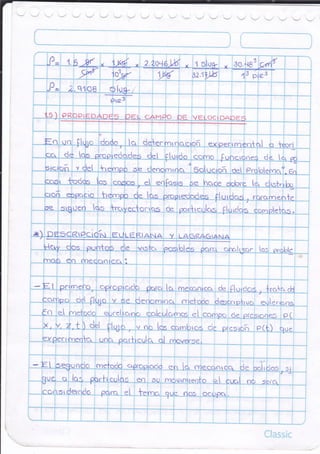 ρ = 1.5 gr/cm³ x 1 kg/10³gr x 2.2046 Lb/1 kg x 1 slug/32.17 Lb x 30.48³ cm³/1³ pie³
ρ = 2.9108 slug/pie³
1.5) PROPIEDADES DEL CAMPO DE VELOCIDADES
En un flujo dado, la determinación experimental o teóri
ca de las propiedades del fluido como funciones de la po
sición y del tiempo se denomina "Solución del Problema". En
casi todos los casos, el énfasis se hace sobre la distribu
ción espacio tiempo de las propiedades fluidas, raramente
se siguen las trayectorias de partículas fluidas completas.
*) DESCRIPCIÓN EULERIANA Y LAGRAGIANA
Hay dos puntos de vista posibles para analizar los proble
mas en mecánica:
- El primero, apropiado para la mecánica de fluidos, trata del
campo del flujo y se denomina método descriptivo euleriano.
En el método euleriano calculamos el campo de presiones P(
x, y, z, t) del flujo, y no los cambios de presión P(t) que
experimenta una partícula al moverse.
- El segundo método apropiado en la mecánica de solidos, si
gue a las partículas en su movimiento el cual no será
considerado para el tema que nos ocupa.
Classic